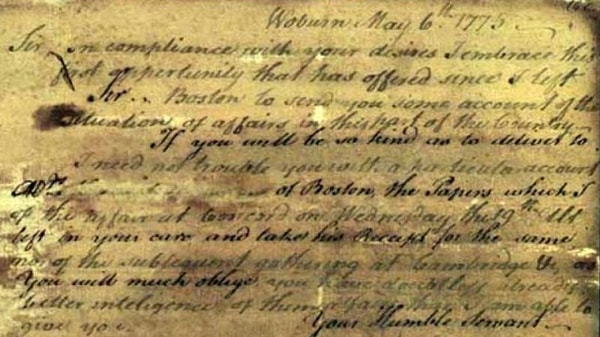 Woburn May 6th. 1775
Sir In compliance with your desires I embrace this
first opportunity that has offered since I left
Sir.. Boston to send you some account of the
situation of affairs in this part of the Country
If you will be so kind as to deliver to
I need not trouble you with a particular account
of Boston, the Papers which I
of the affair at Concord on Wednesday the 19th Ult
left in your care, and take his Receipt for the same
nor of the subsequent gathering at Cambridge &c, as
You will much oblige, you have doubtless already
better inteligence of them than I am able to
give you. Your Humble Servant